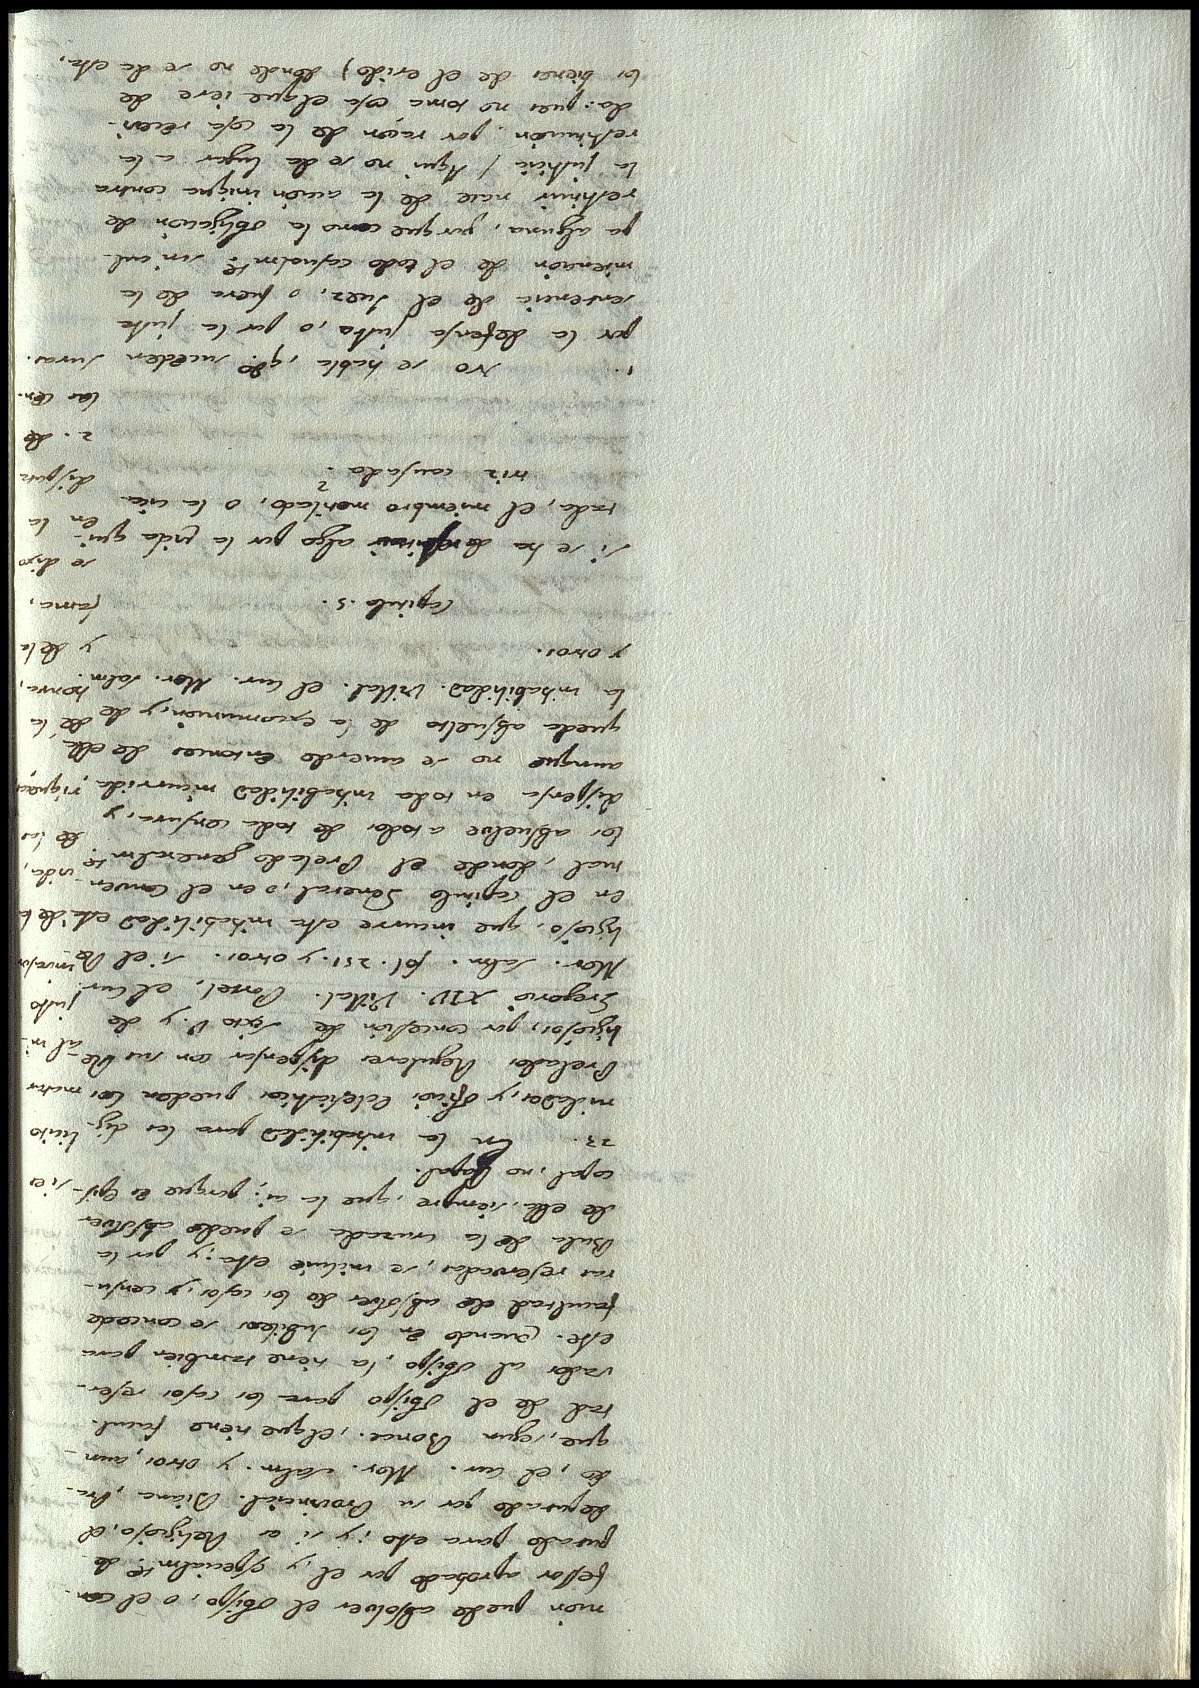 nion puede absolver el Obispo, o el con-
fessor aprobado por el, y especialmte. de-
putado para esto; y si es Religioso, el
deputado por su Provincial. Diana, 
do, el cur. Mor. Salm. y otros, aun-
que, segun Bonac. el que tiene facul-
tad de el Obispo para los casos reser-
vados al Obispo, la tiene tambien para
este. Quando en los Jubileos se concede
facultad de absolver de los casos, y censu-
ras reservadas, se incluie esta; y por la
Bula de la cruzada se puede absolver
de ella siempre, que la ai; porque es Epis-
copal, no Papal.
23. En la inhabilidad para las dig-
nidades, y oficios eclesiasticos pueden los
Prelados Regulares dispensar con sus Re-
ligiosos, por concesion de Sixto V. y de
Gregorio XIV. Villal. Portel, el cur.
Mor. Salm. fol. 251. y otros. Si el Re-
ligioso, que incurre esta inhabilidad està
en el capitulo General, o en el conven-
tual, donde el Prelado generalmte.
los absuelve a todos de toda censura, y
dispensa en toda inhabilidad incurrida,
aunque no se acuerde entonces de ella
queda absuelto de la excomunion, y de
la inhabilidad. Villal. el Cur. Mor. Salm.
y otros.
Capitulo. 5.
Si se ha de restituir algo por la vida qui-
tada, el miembro mutilado, o la cica-
triz causada?
1. No se habla, qdo. suceden
por la defensa justa, o por la justa
sentencia de el Juez, o fuera de la
intencion de el todo casualmte. sin cul-
pa alguna, porque como la obligacion de
restituir nace de la accion iniqua contra
la justicia (Aqui no se da lugar a la
restitucion, por razon de la cosa recevi-
da: pues no toma cosa el que iere de
los bienes de el erido) donde no se da esta,